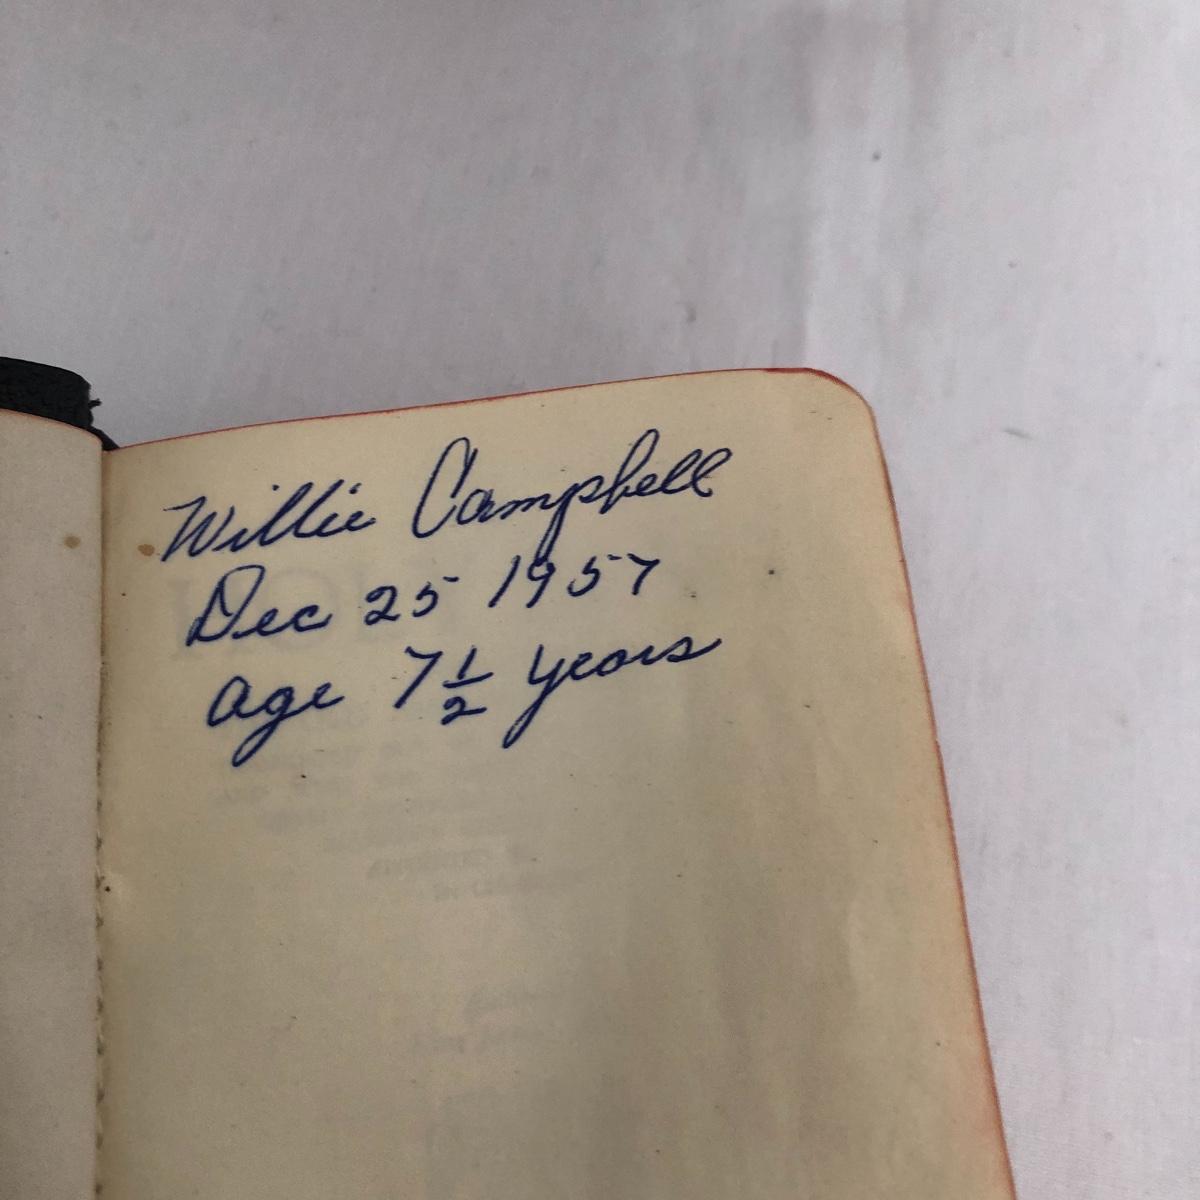 Willie Campbell
Dec 25 1957
age 7 1/2 years